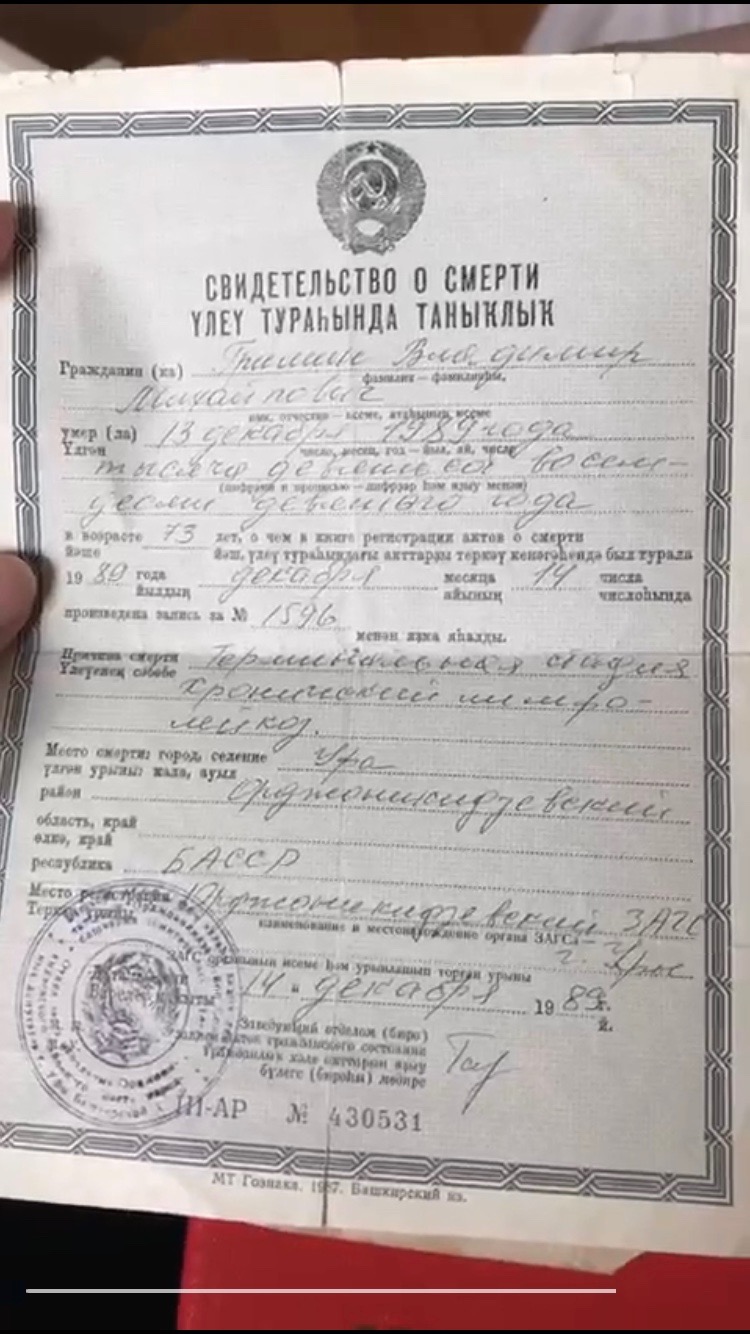 СВИДЕТЕЛЬСТВО О СМЕРТИ
ҮЛЕҮ ТУРАҺЫНДА ТАНЫҠЛЫҠ
Гражданин (ка) Гришин Владимир
фамилия — фамилияһы,
Михайлович
имя, отчество — исеме, атаһының исеме
умер (ла) 13 декабря 1989 года
Үлгән
число, месяц, год — йыл, ай, число
тысяча девятьсот восемь-
(цифрами и прописью — цифрҙар һәм яҙыу менән)
десят девятого года
в возрасте 73 лет, о чем в книге регистрации актов о смерти
йәше йәш, үлеү тураһындағы акттарҙы теркәү кенәгәһендә был турала
19 89 года декабря месяца 14 числа
йылдың айының числоһында
произведена запись за № 1596
менән яҙма яһалды.
Причина смерти Терминальная стадия
Үлеүенең сәбәбе
Хронический лимфо-
лейкоз.
Место смерти: город, селение Уфа
үлгән урыны: ҡала, ауыл
район Орджоникидзевский
область, край
өлкә, край
республика БАССР
Место регистрации Орджоникидзевский ЗАГС
Теркәү урыны
наименование и местонахождение органа ЗАГСа —
г. Уфы
ЗАГС органының исеме һәм урынлашып торған урыны
14 " декабря 19 89 г.
й.
Заведующий отделом (бюро)
записи актов гражданского состояния
Граждандық хәле акттарын яҙыу
бүлеге (бюроһы) мөдире
III-АР № 430531
МТ Гознака. 1987. Башкирский яз.